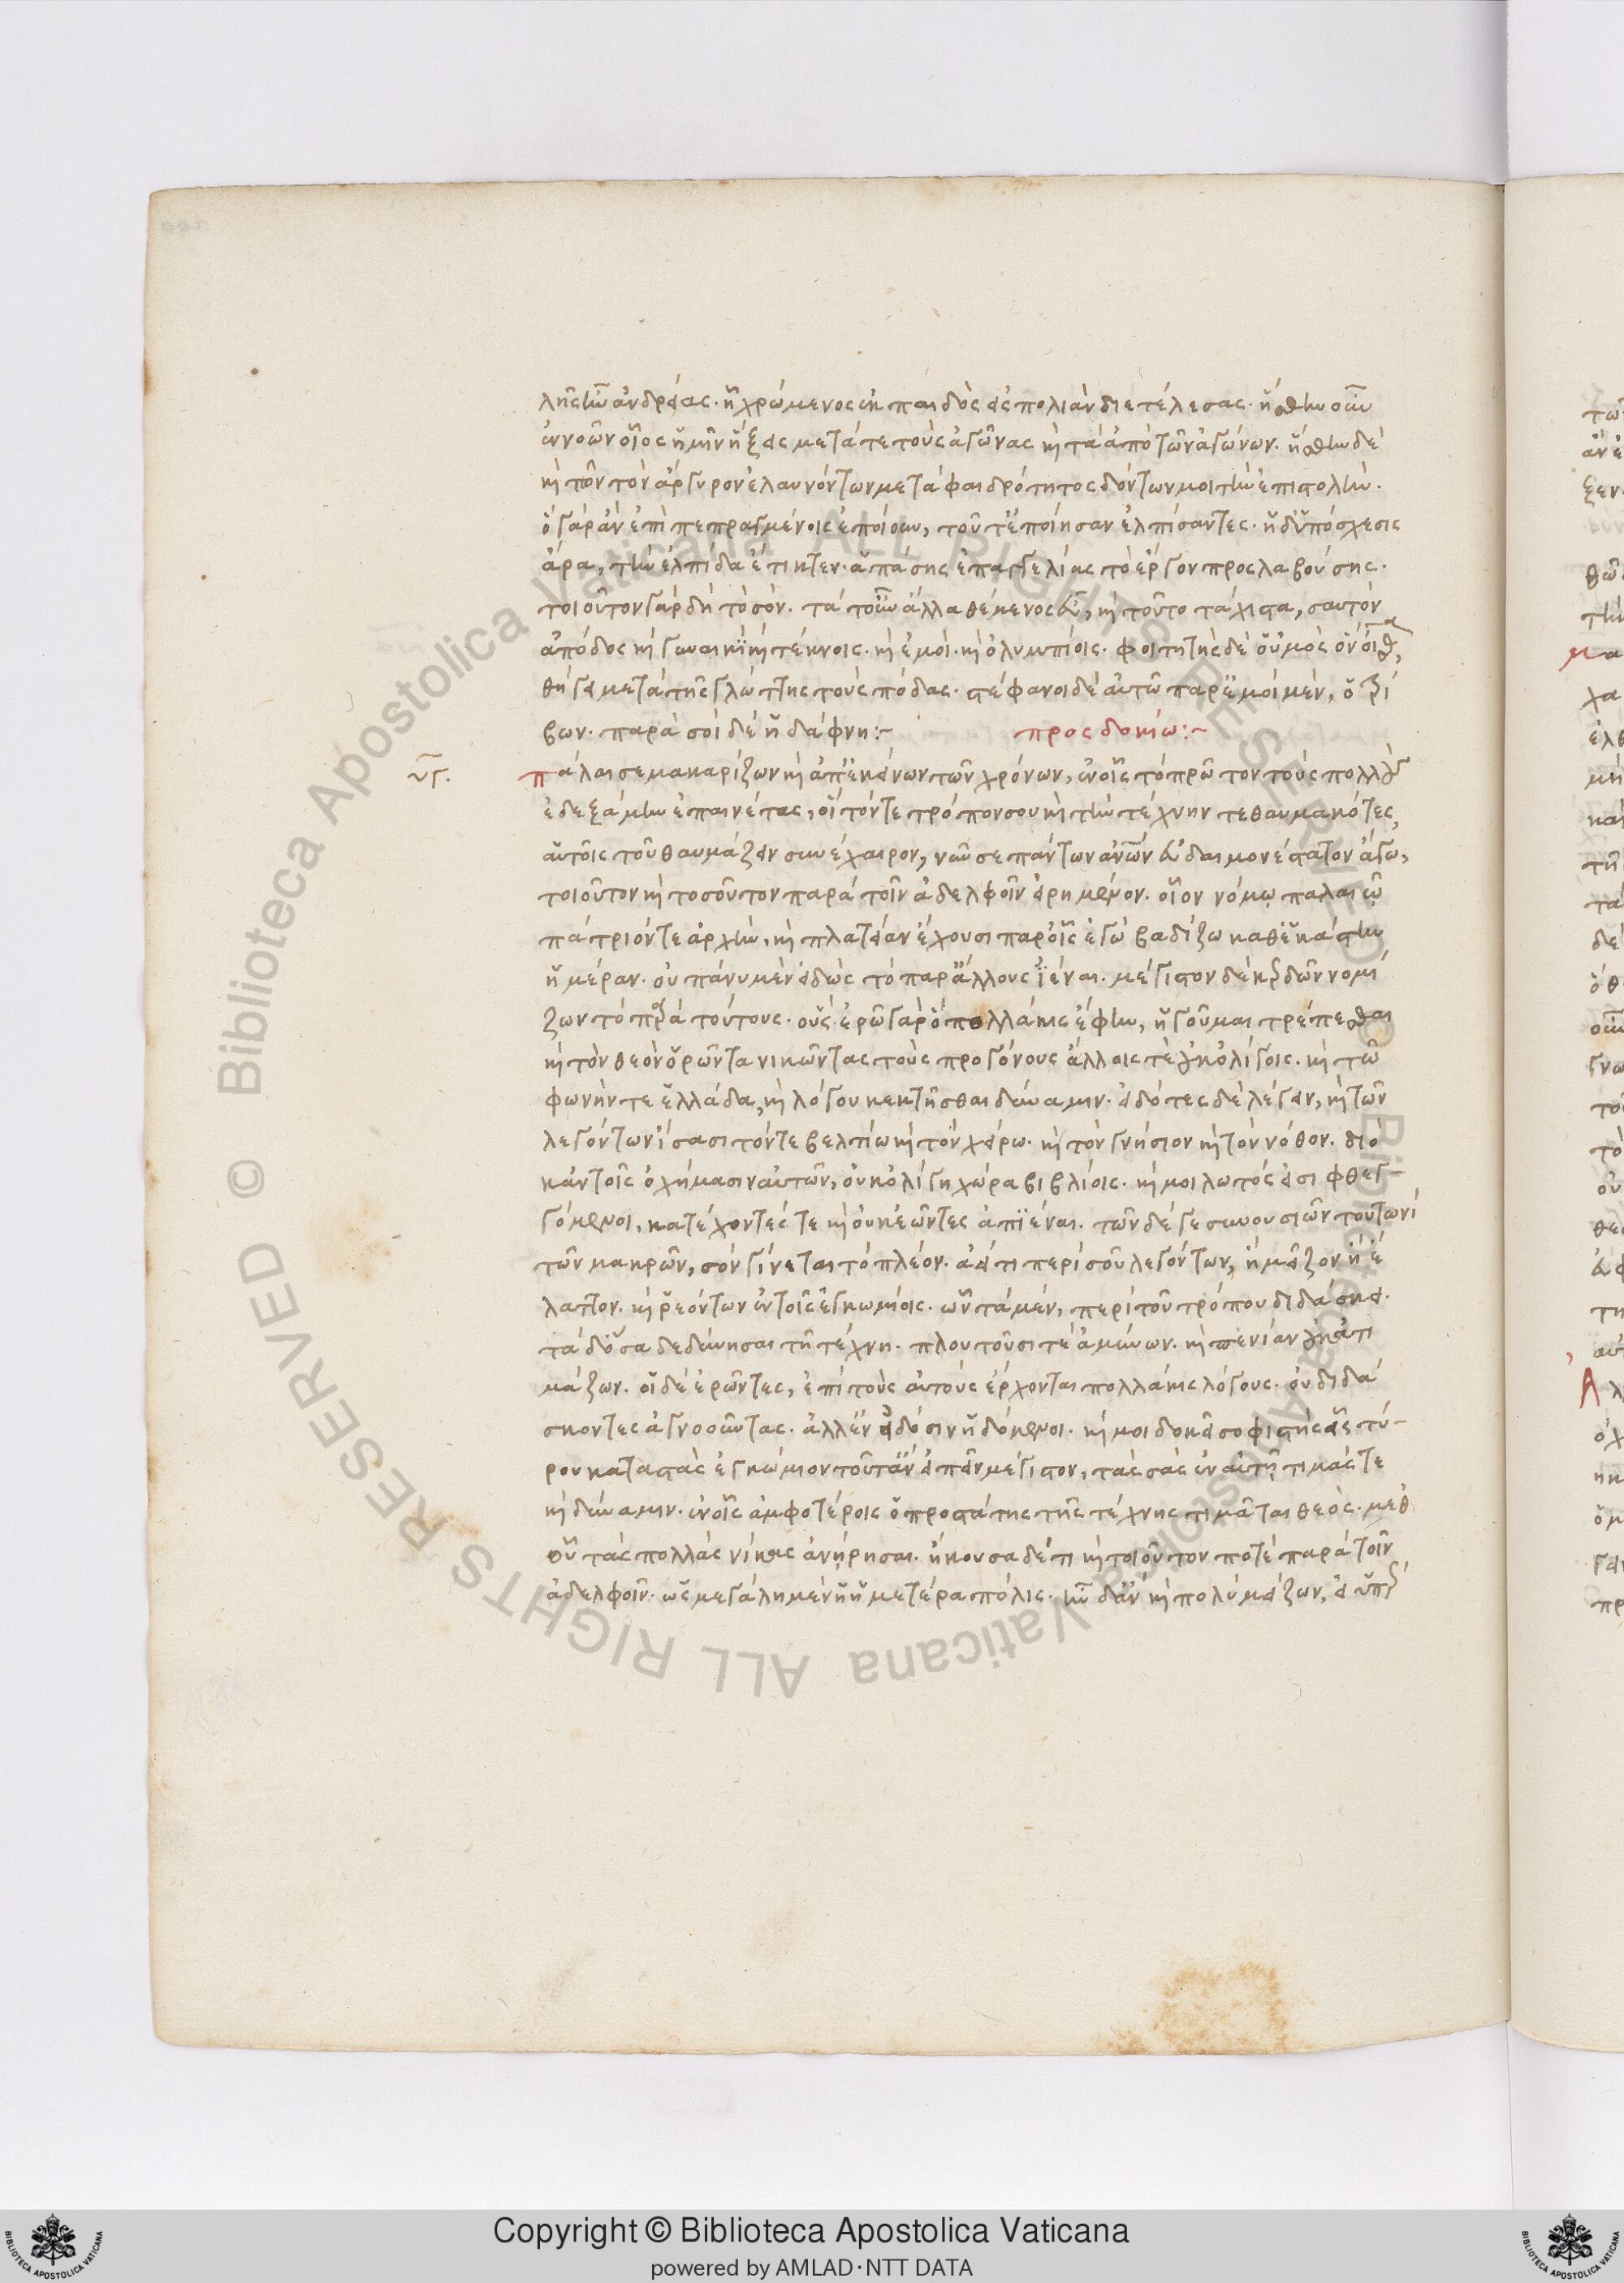 λῆς τῶν ἀνδρείας. ᾗ χρώμενος ἐκ παιδὸς εἰς πολιὰν διετέλεσας. ἥσθην οὖν
ἐννοῶν οἷος ἡμῖν ἥξεις μετά τε τοὺς ἀγῶνας καὶ τὰ ἀπὸ τῶν ἀγώνων. ἥσθην δὲ
καὶ τῶν τὸν ἄργυρον ἐλαυνόντων μετὰ φαιδρότητος δόντων μοι τὴν ἐπιστολήν.
ὃ γὰρ ἂν ἐπὶ πεπραγμένοις ἐποίουν, τοῦτ' ἐποίησαν ἐλπίσαντες. ἡ δ' ὑπόσχεσις
ἄρα, τὴν ἐλπίδα ἔτικτεν. ἁπάσης ἐπαγγελίας τὸ ἔργον προσλαβούσης.
τοιοῦτον γὰρ δὴ τὸ σόν. τὰ τοίνυν ἄλλα θέμενος εὖ, καὶ τοῦτο τάχιστα, σαυτὸν
ἀπόδος καὶ γυναικὶ καὶ τέκνοις. καὶ ἐμοί. καὶ ὀλυμπίοις. φοιτητὴς δὲ οὑμὸς ὃν οἶσθα,
θήγει μετὰ τῆς γλώττης τοὺς πόδας. στέφανοι δὲ αὐτῷ παρ' ἐμοὶ μὲν, ὁ τρί
βων. παρὰ σοὶ δὲ ἡ δάφνη:~ προς δομίω:~
νγ. πάλαι σε μακαρίζων καὶ ἀπ' ἐκείνων τῶν χρόνων, ἐν οἷς τὸ πρῶτον τοὺς πολλοὺς
ἐδεξάμην ἐπαινέτας, οἳ τόν τε τρόπον σου καὶ τὴν τέχνην τεθαυμακότες,
αὐτοῖς τοῦ θαυμάζειν συνέχαιρον, νῦν σε πάντων ἀνθρώπων εὐδαιμονέστατον ἄγω,
τοιοῦτον καὶ τοσοῦτον παρὰ τοῖν ἀδελφοῖν εἰρημένον. οἷον νόμῳ παλαιῷ
πάτριόν τε ἀρχὴν, καὶ πλατεῖαν ἔχουσι παρ' οἷς ἐγὼ βαδίζω καθ' ἑκάστην
ἡμέραν. οὐ πάνυ μὲν εἰδὼς τὸ παρ' ἄλλους ἰέναι. μέγιστον δὲ κερδῶν νομί
ζων τὸ παρὰ τούτους. οὓς ἐρῶ γὰρ ὃ πολλάκις ἔφην, ἡγοῦμαι τρέπεσθαι
καὶ τὸν θεὸν ὁρῶντα νικῶντας τοὺς προγόνους ἄλλοις τε οὐκ ὀλίγοις. καὶ τῷ
φωνήν τε ἑλλάδα, καὶ λόγου κεκτῆσθαι δύναμιν. εἰδότες δὲ λέγειν, καὶ τῶν
λεγόντων ἴσασι τόν τε βελτίω καὶ τὸν χείρω. καὶ τὸν γνήσιον καὶ τὸν νόθον. διὸ
κἀν τοῖς ὀχήμασιν αὐτῶν, οὐκ ὀλίγη χώρα βιβλίοις. καί μοι λωτός εἰσι φθεγ-
γόμενοι, κατέχοντές τε καὶ οὐκ ἐῶντες ἀπιέναι. τῶν δέ γε συνουσιῶν τουτωνὶ
τῶν μακρῶν, σὸν γίνεται τὸ πλέον. ἀεί τι περὶ σοῦ λεγόντων, ἢ μεῖζον ἢ ἔ
λαττον. καὶ ῥεόντων ἐν τοῖς ἐγκωμίοις. ὧν τὰ μὲν, περὶ τοῦ τρόπου διδάσκει.
τὰ δ' ὅσα δεδύνησαι τῇ τέχνῃ. πλουτοῦσί τε ἀμύνων. καὶ πενίαν οὐκ ἀτι
μάζων. οἱ δὲ ἐρῶντες, ἐπὶ τοὺς αὐτοὺς ἔρχονται πολλάκις λόγους. οὐ διδά
σκοντες ἀγνοοῦντας. ἀλλ' ἐν εἰδόσιν ἡδόμενοι. καί μοι δοκεῖ σοφιστὴς εἷς τύ-
ρου καταστὰς ἐγκώμιον τοῦτ' ἂν εἰπεῖν μέγιστον, τὰς σὰς ἐν αὐτῇ τιμάς τε
καὶ δύναμιν. ἐν οἷς ἀμφοτέροις ὁ προστάτης τῆς τέχνης τιμᾶται θεός. μεθ'
οὗ τὰς πολλὰς νίκας ἀνῄρησαι. ἤκουσα δέ τι καὶ τοιοῦτον ποτὲ παρὰ τοῖν
ἀδελφοῖν. ὡς μεγάλη μὲν ἡ ἡμετέρα πόλις. ἦν δ' ἂν καὶ πολὺ μείζων, εἰ ὑπὲρ